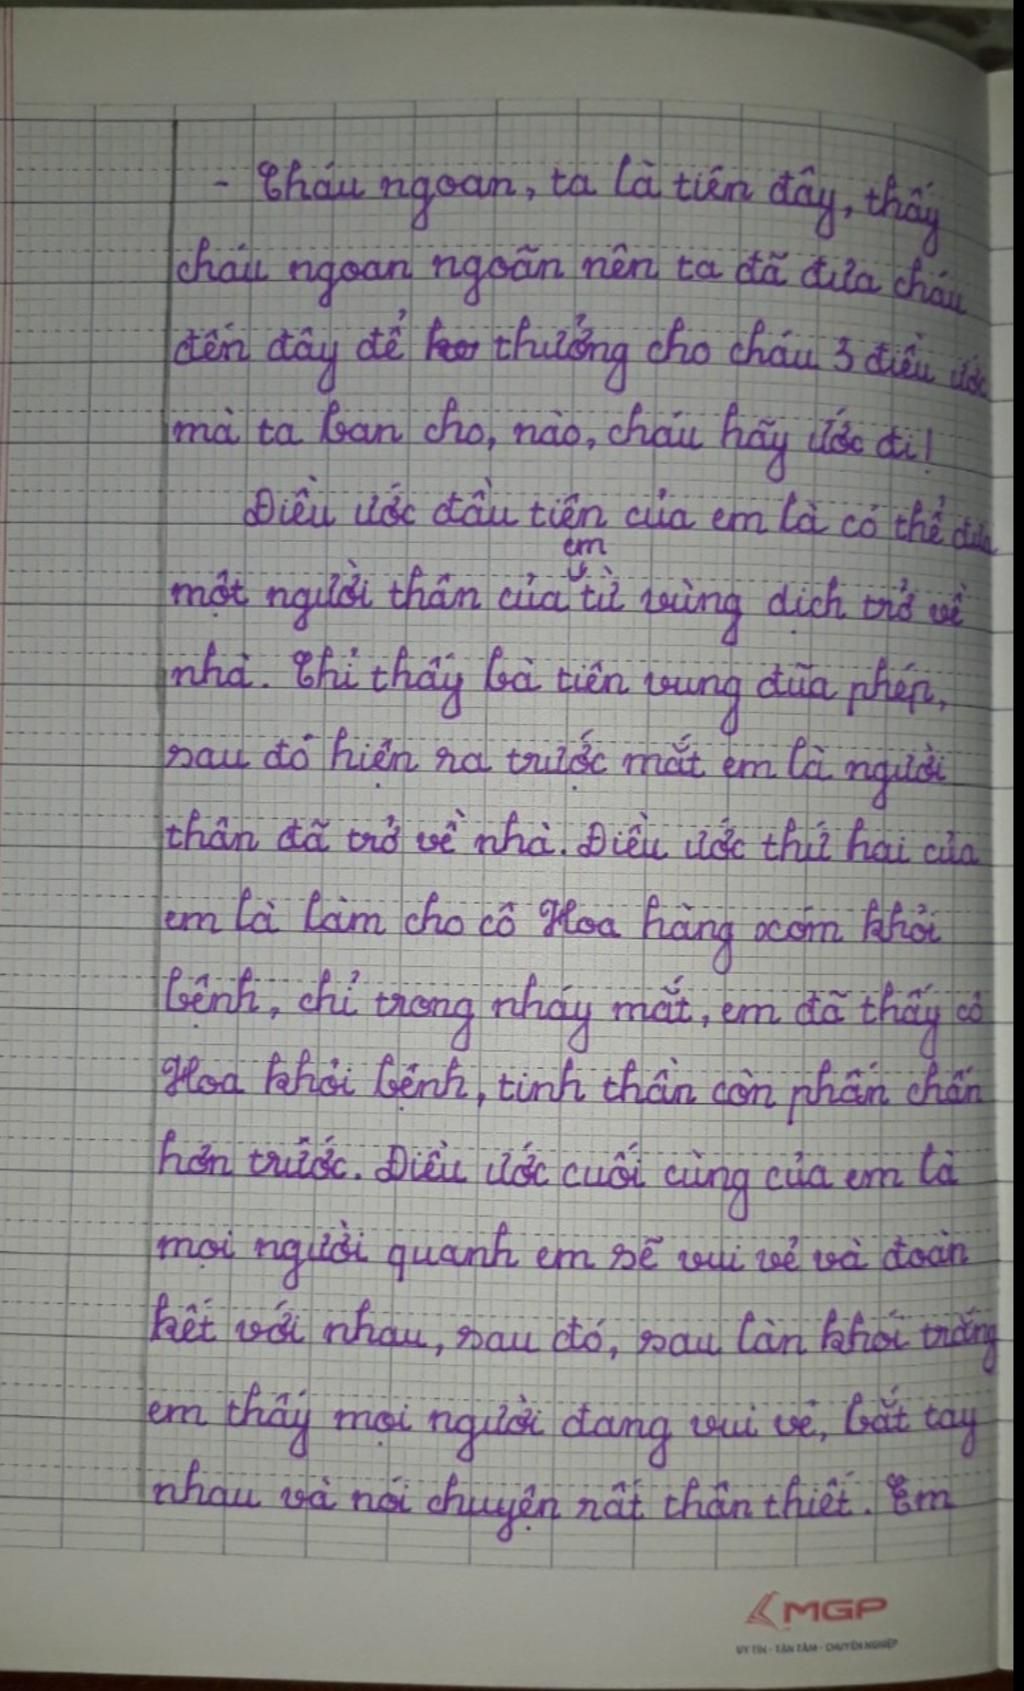 - Cháu ngoan, ta là tiên đây, thấy
cháu ngoan ngoãn nên ta đã đưa cháu
đến đây để thưởng cho cháu 3 điều ước
mà ta ban cho, nào, cháu hãy ước đi!
Điều ước đầu tiên của em là có thể đưa
một người thân của em từ vùng dịch trở về
nhà. Chỉ thấy bà tiên vung đũa phép,
sau đó hiện ra trước mắt em là người
thân đã trở về nhà. Điều ước thứ hai của
em là làm cho cô Hoa hàng xóm khỏi
bệnh, chỉ trong nháy mắt, em đã thấy cô
Hoa khỏi bệnh, tinh thần còn phấn chấn
hơn trước. Điều ước cuối cùng của em là
mọi người quanh em sẽ vui vẻ và đoàn
kết với nhau, sau đó, sau làn khói trắng
em thấy mọi người đang vui vẻ, bắt tay
nhau và nói chuyện rất thân thiết. Em
MGP
UY TÍN - TẬN TÂM - CHUYÊN NGHIỆP